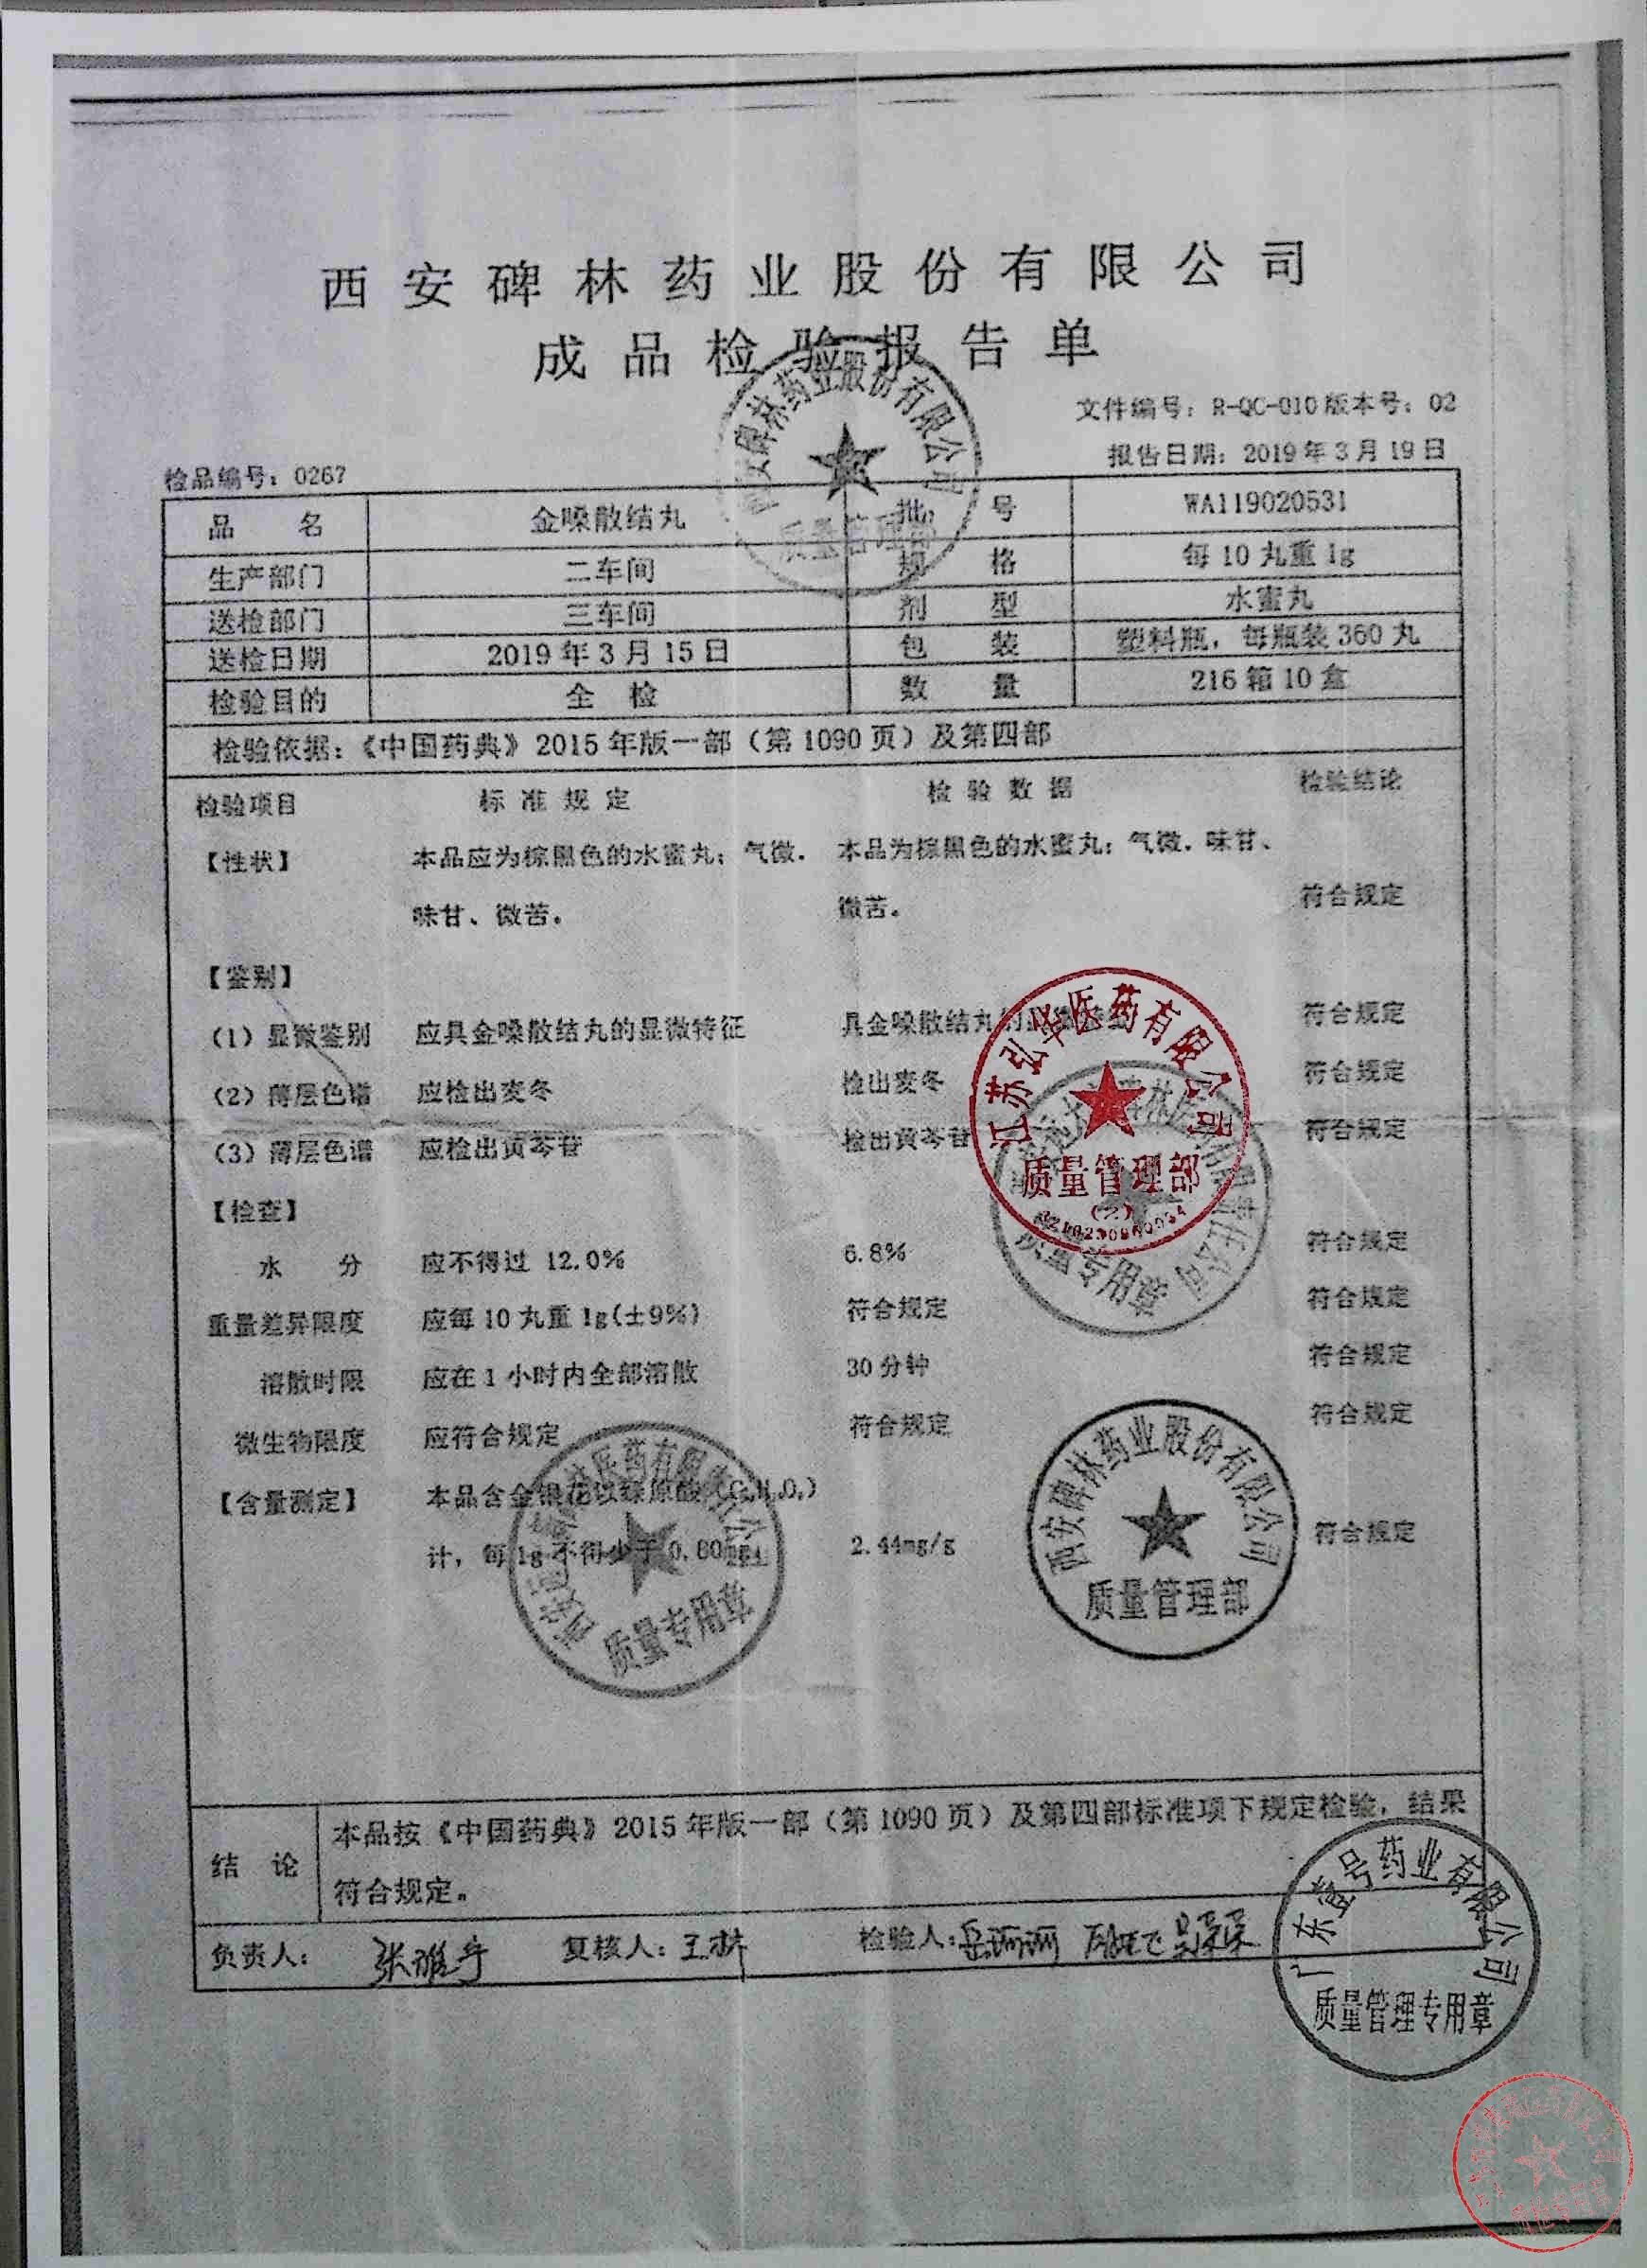 西安碑林药业股份有限公司
成品检验报告单
文件编号：R-QC-010 版本号：02
报告日期：2019年3月19日
检品编号：0267
品 名 金嗓散结丸 批 号 WA119020531
生产部门 二车间 规 格 每10丸重1g
送检部门 三车间 剂 型 水蜜丸
送检日期 2019年3月15日 包 装 塑料瓶，每瓶装360丸
检验目的 全 检 数 量 216箱10盒
检验依据：《中国药典》2015年版一部（第1090页）及第四部
检验项目 标准规定 检验数据 检验结论
【性状】 本品应为棕黑色的水蜜丸；气微， 本品为棕黑色的水蜜丸；气微，味甘、
味甘、微苦。 微苦。 符合规定
【鉴别】
（1）显微鉴别 应具金嗓散结丸的显微特征 具金嗓散结丸的显微特征 符合规定
（2）薄层色谱 应检出麦冬 检出麦冬 符合规定
（3）薄层色谱 应检出黄芩苷 检出黄芩苷 符合规定
【检查】
水 分 应不得过 12.0% 6.8% 符合规定
重量差异限度 应每10丸重1g(±9%) 符合规定 符合规定
溶散时限 应在1小时内全部溶散 30分钟 符合规定
微生物限度 应符合规定 符合规定 符合规定
【含量测定】 本品含金银花以绿原酸
计，每1g不得少于0.60mg 2.44mg/g 符合规定
结 论 本品按《中国药典》2015年版一部（第1090页）及第四部标准项下规定检验，结果
符合规定。
负责人： 复核人： 检验人：
西安碑林药业股份有限公司
质量管理部
江苏弘华医药有限公司
质量管理部
（2）
质量专用章
质量专用章
西安碑林药业股份有限公司
质量管理部
广东壹号药业有限公司
质量管理专用章